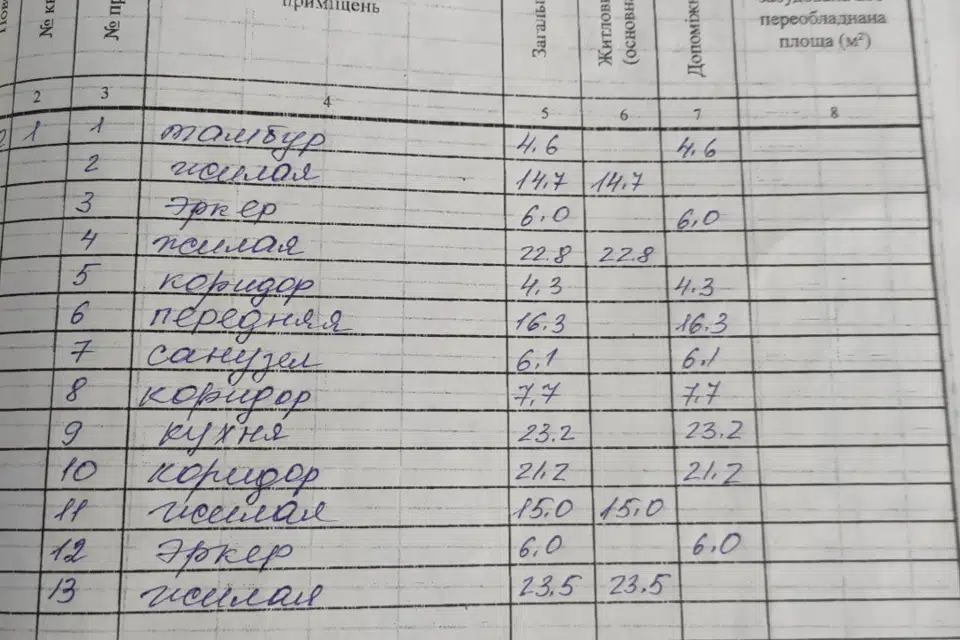 № кв
№ пр
приміщень
Загаль
Житлов
(основн
Допоміжн
переобладнана
площа (м²)
2 3 4 5 6 7 8
1 1 тамбур 4.6 4.6
2 жилая 14.7 14.7
3 эркер 6.0 6.0
4 жилая 22.8 22.8
5 коридор 4.3 4.3
6 передняя 16.3 16.3
7 санузел 6.1 6.1
8 коридор 7,7 7,7
9 кухня 23.2 23.2
10 коридор 21.2 21.2
11 жилая 15.0 15.0
12 эркер 6.0 6.0
13 жилая 23.5 23.5